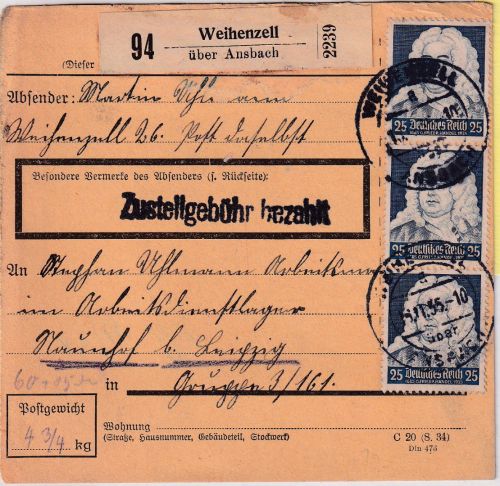 94 Weihenzell
über Ansbach
2239
(Dieser
Absender: Martin Uhl am
Weihenzell 26. Post daselbst
Besondere Vermerke des Absenders (s. Rückseite):
Zustellgebühr bezahlt
An Stephan Uhlmann Arbeitsm
im Arbeitsdienstlager
Naunhof b. Leipzig
60 + 15
in Gruppe 3/161.
Postgewicht
4 3/4 kg
Wohnung
(Straße, Hausnummer, Gebäudeteil, Stockwerk)
C 20 (8. 34)
Din 476
25 Deutsches Reich 25
25 Deutsches Reich 25
25 Deutsches Reich 25
WEIHENZELL
.11.35.-10
über